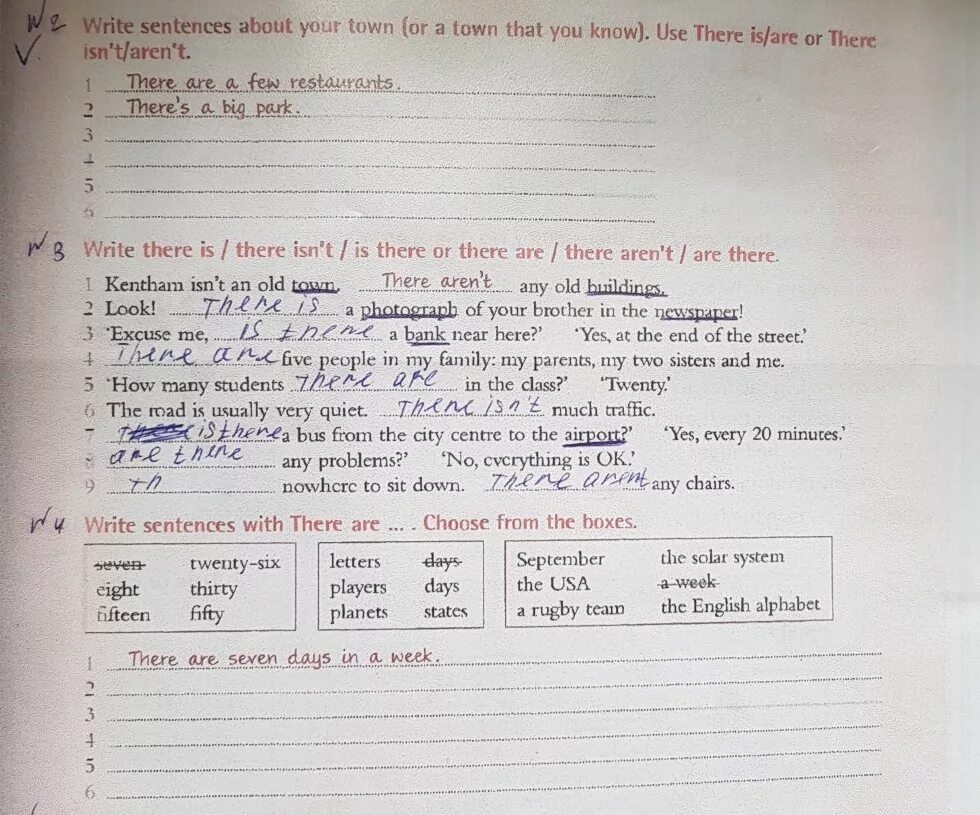 №2 Write sentences about your town (or a town that you know). Use There is/are or There
isn't/aren't.
1 There are a few restaurants.
2 There's a big park.
3
4
5
6
№3 Write there is / there isn't / is there or there are / there aren't / are there.
1 Kentham isn't an old town. There aren't any old buildings.
2 Look! There is a photograph of your brother in the newspaper!
3 'Excuse me, is there a bank near here?' 'Yes, at the end of the street.'
4 There are five people in my family: my parents, my two sisters and me.
5 'How many students There are in the class?' 'Twenty.'
6 The road is usually very quiet. There isn't much traffic.
7 is there a bus from the city centre to the airport?' 'Yes, every 20 minutes.'
8 are there any problems?' 'No, everything is OK.'
9 th nowhere to sit down. There arent any chairs.
№4 Write sentences with There are ... . Choose from the boxes.
seven twenty-six letters days September the solar system
eight thirty players days the USA a week
fifteen fifty planets states a rugby team the English alphabet
1 There are seven days in a week.
2
3
4
5
6